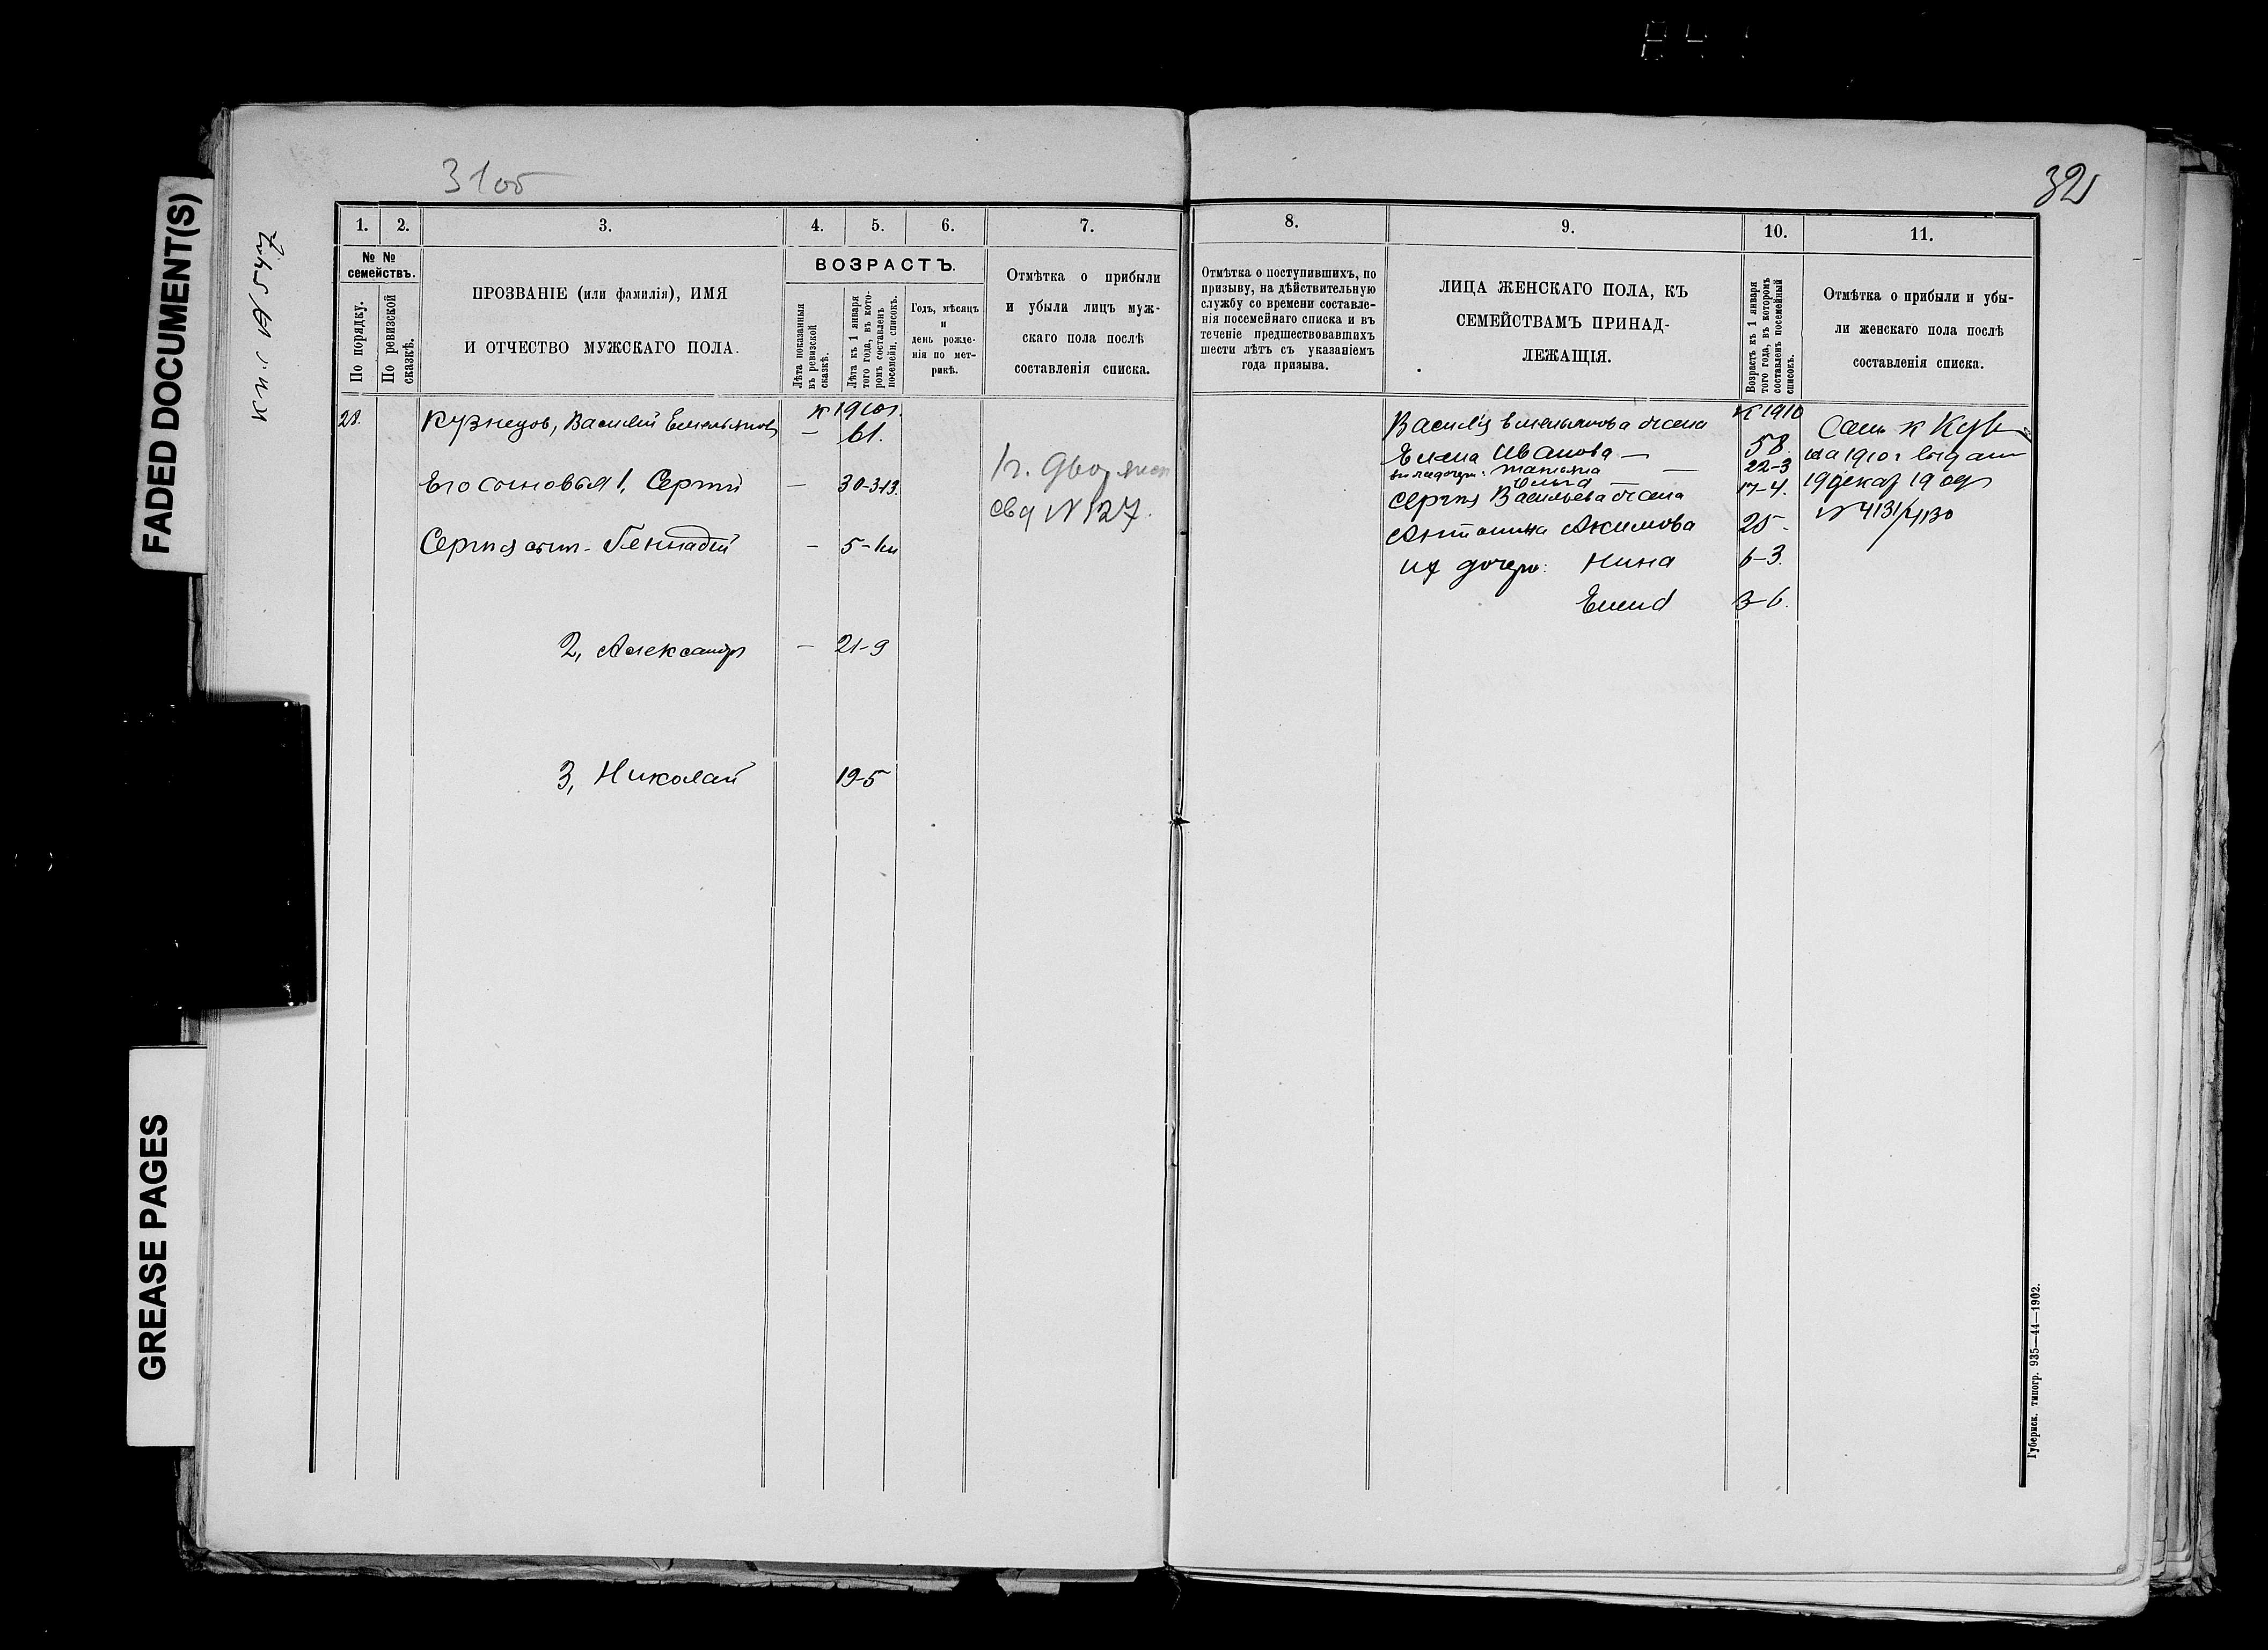 FADED DOCUMENT(S)
GREASE PAGES
31об
32
1.
2.
3.
4.
5.
6.
7.
8.
9.
10.
11.
№ №
семействъ.
По порядку.
По ревизской
сказкѣ.
ПРОЗВАНІЕ (или фамилія), ИМЯ
И ОТЧЕСТВО МУЖСКАГО ПОЛА.
ВОЗРАСТЪ.
Лѣта показанныя
въ ревизской
сказкѣ.
Лѣта къ 1 января
того года, въ кото-
ромъ составленъ
посемейн. списокъ.
Годъ, мѣсяцъ
и
день рожде-
нія по мет-
рикѣ.
Отмѣтка о прибыли
и убыли лицъ муж-
скаго пола послѣ
составленія списка.
Отмѣтка о поступившихъ, по
призыву, на дѣйствительную
службу со времени составле-
нія посемейнаго списка и въ
теченіе предшествовавшихъ
шести лѣтъ съ указаніемъ
года призыва.
ЛИЦА ЖЕНСКАГО ПОЛА, КЪ
СЕМЕЙСТВАМЪ ПРИНАД-
ЛЕЖАЩІЯ.
Возрастъ къ 1 января
того года, въ которомъ
составленъ посемейный
списокъ.
Отмѣтка о прибыли и убы-
ли женскаго пола послѣ
составленія списка.
28.
Кузнецов, Василий Емельянов
к 1910 г.
— 61.
Его сыновья 1, Сергий — 30-3-13.
Сергия сын - Геннадий — 5-
2, Александр — 21-9
3, Николай 19-5
свд № 127.
Василия Емельянова жена
к 1910
Елена Иванова — 58.
Татьяна — 22-3
17-4.
Сергия Васильева жена
Антонина Акимова 25.
их дочери: Нина 6-3.
3-6.
на 1910 г
№ 4131/4130
Губернск. типогр. 935—44—1902.